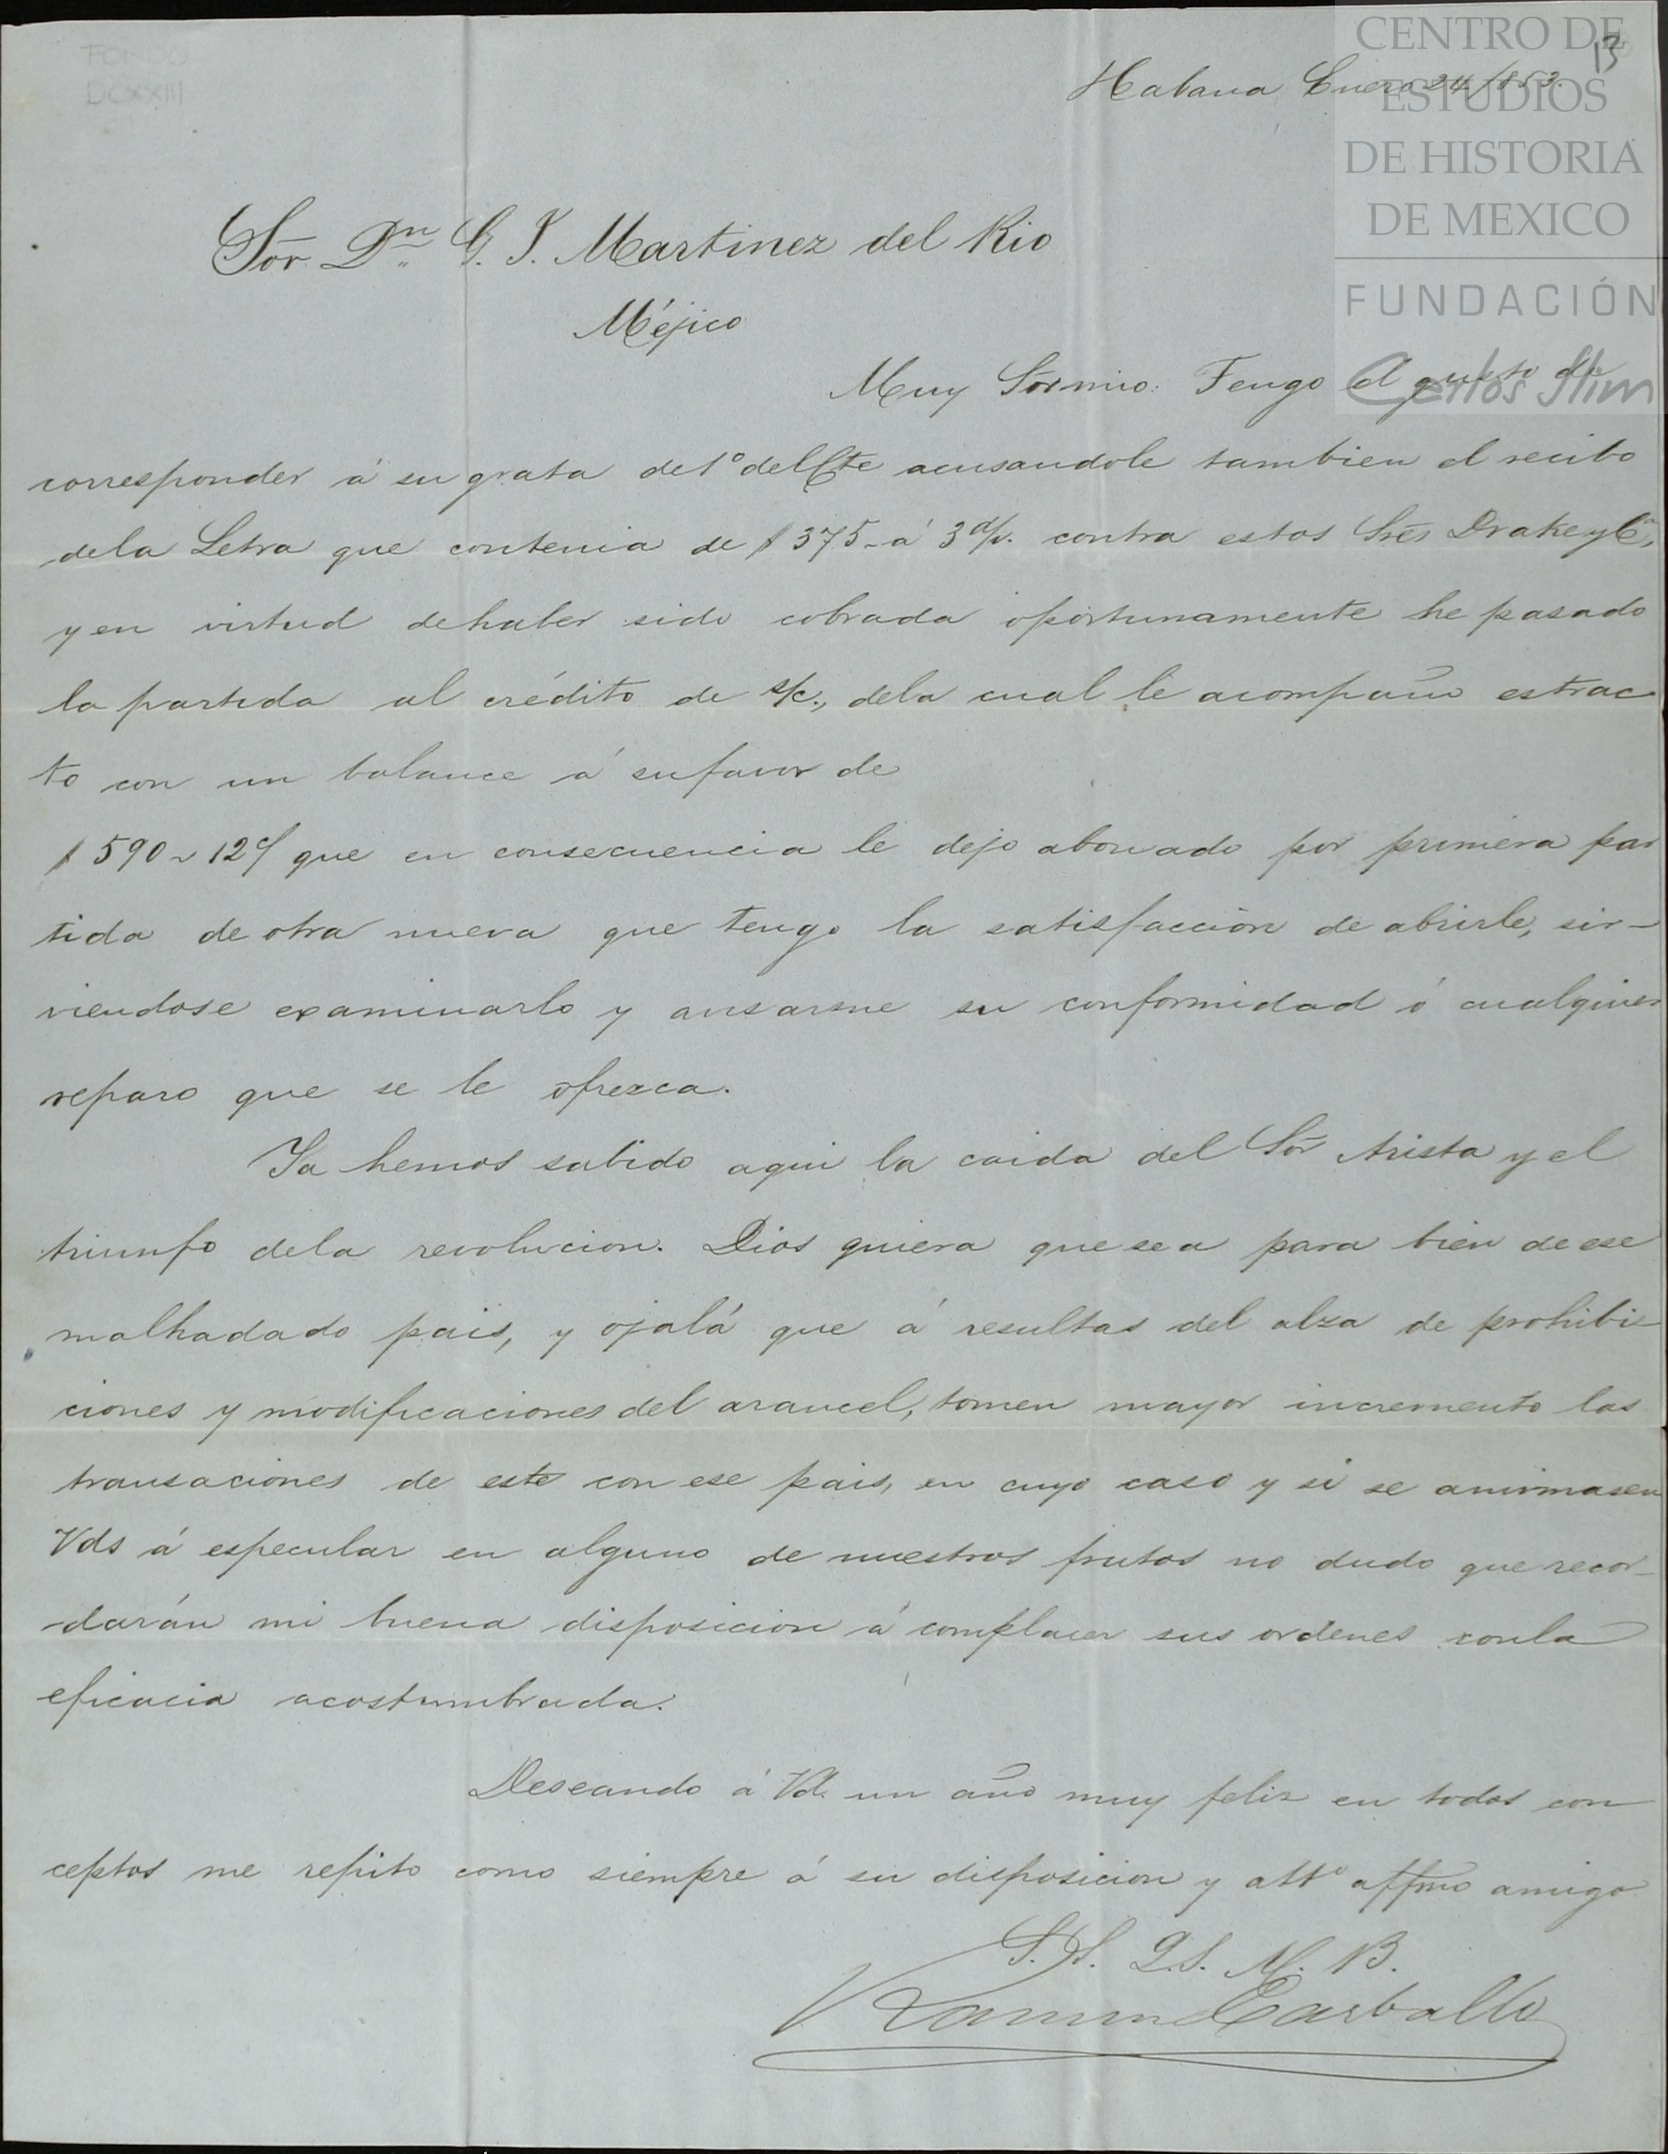 FONDO
DCXXIII
13
CENTRO DE
ESTUDIOS
DE HISTORIA
DE MEXICO
FUNDACIÓN
Carlos Slim
Habana Enero 24/853.
Sōr Dn G. J. Martinez del Rio
Méjico
Muy Sōr mio: Tengo el gusto de
corresponder á su grata de 1º del Cte acusandole tambien el recibo
dela Letra que contenia de $375- á 3 d/v. contra estos Sres Drake y Cª,
y en virtud de haber sido cobrada oportunamente he pasado
la partida al crédito de s/c., dela cual le acompaño estrac
to con un balance á su favor de
$590 ~ 12 que en consecuencia le dejo abonado por primera par
tida de otra nueva que tengo la satisfaccion de abrirle, sir-
viendose examinarlo y avisarme su conformidad ó cualquier
reparo que se le ofrezca.
Ya hemos sabido aqui la caida del Sōr Arista y el
triunfo dela revolucion. Dios quiera que sea para bien de ese
malhadado pais, y ojalá que á resultas del alza de prohibi-
ciones y modificaciones del arancel, tomen mayor incremento las
transaciones de este con ese pais, en cuyo caso y si se animasen
Vds á especular en alguno de nuestros frutos no dudo que recor-
-darán mi buena disposicion á complacer sus ordenes con la
eficacia acostumbrada.
Deseando á Vd. un año muy feliz en todos con
ceptos me repito como siempre á su disposicion y attº affmo amigo
S. S. Q. S. M. B.
Ramon Carballo